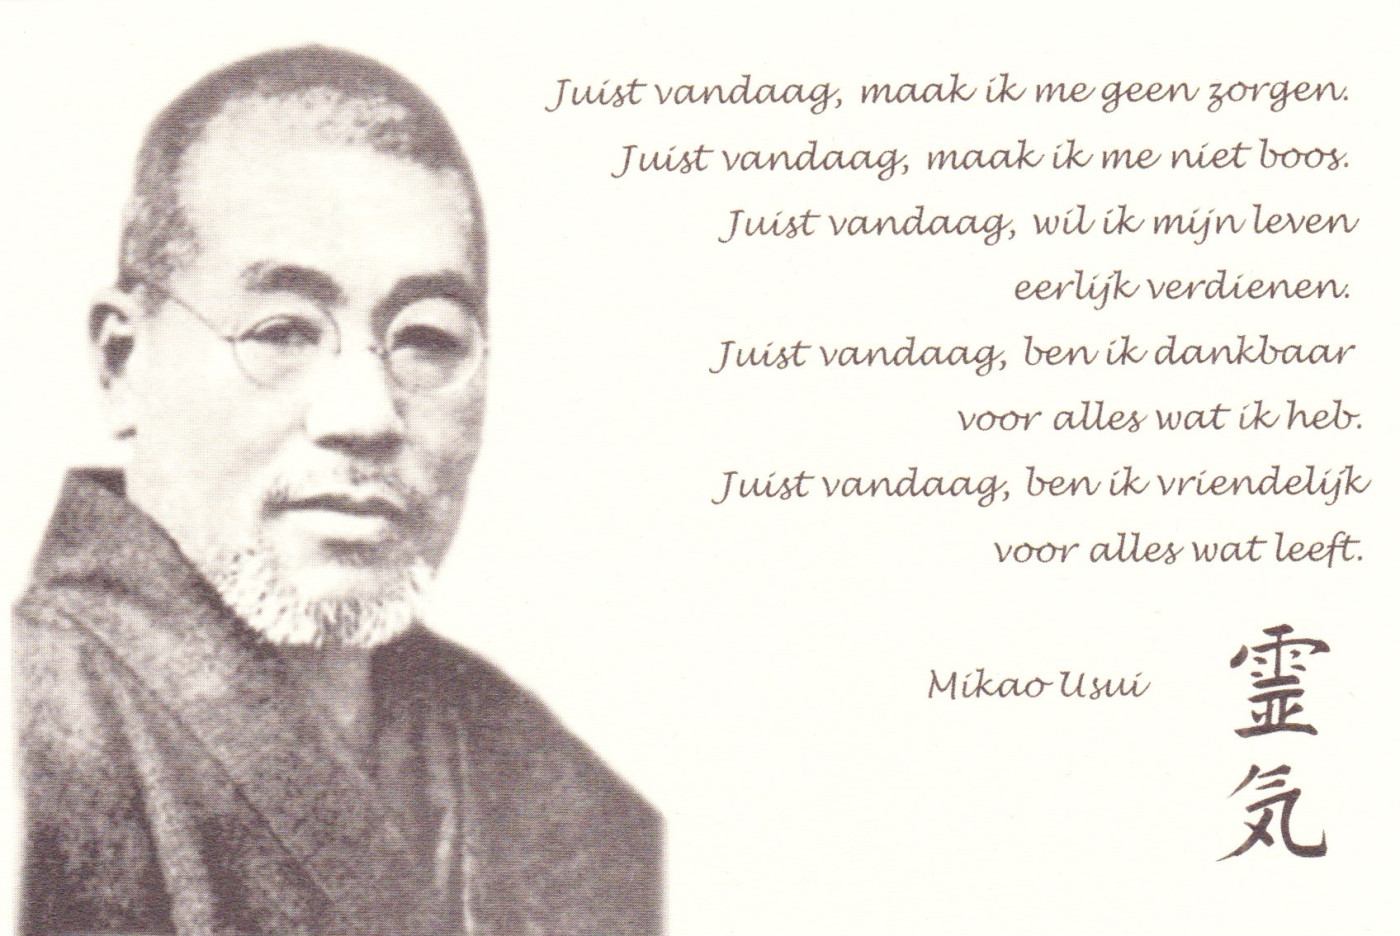 Juist vandaag, maak ik me geen zorgen.
Juist vandaag, maak ik me niet boos.
Juist vandaag, wil ik mijn leven
eerlijk verdienen.
Juist vandaag, ben ik dankbaar
voor alles wat ik heb.
Juist vandaag, ben ik vriendelijk
voor alles wat leeft.
Mikao Usui
霊気